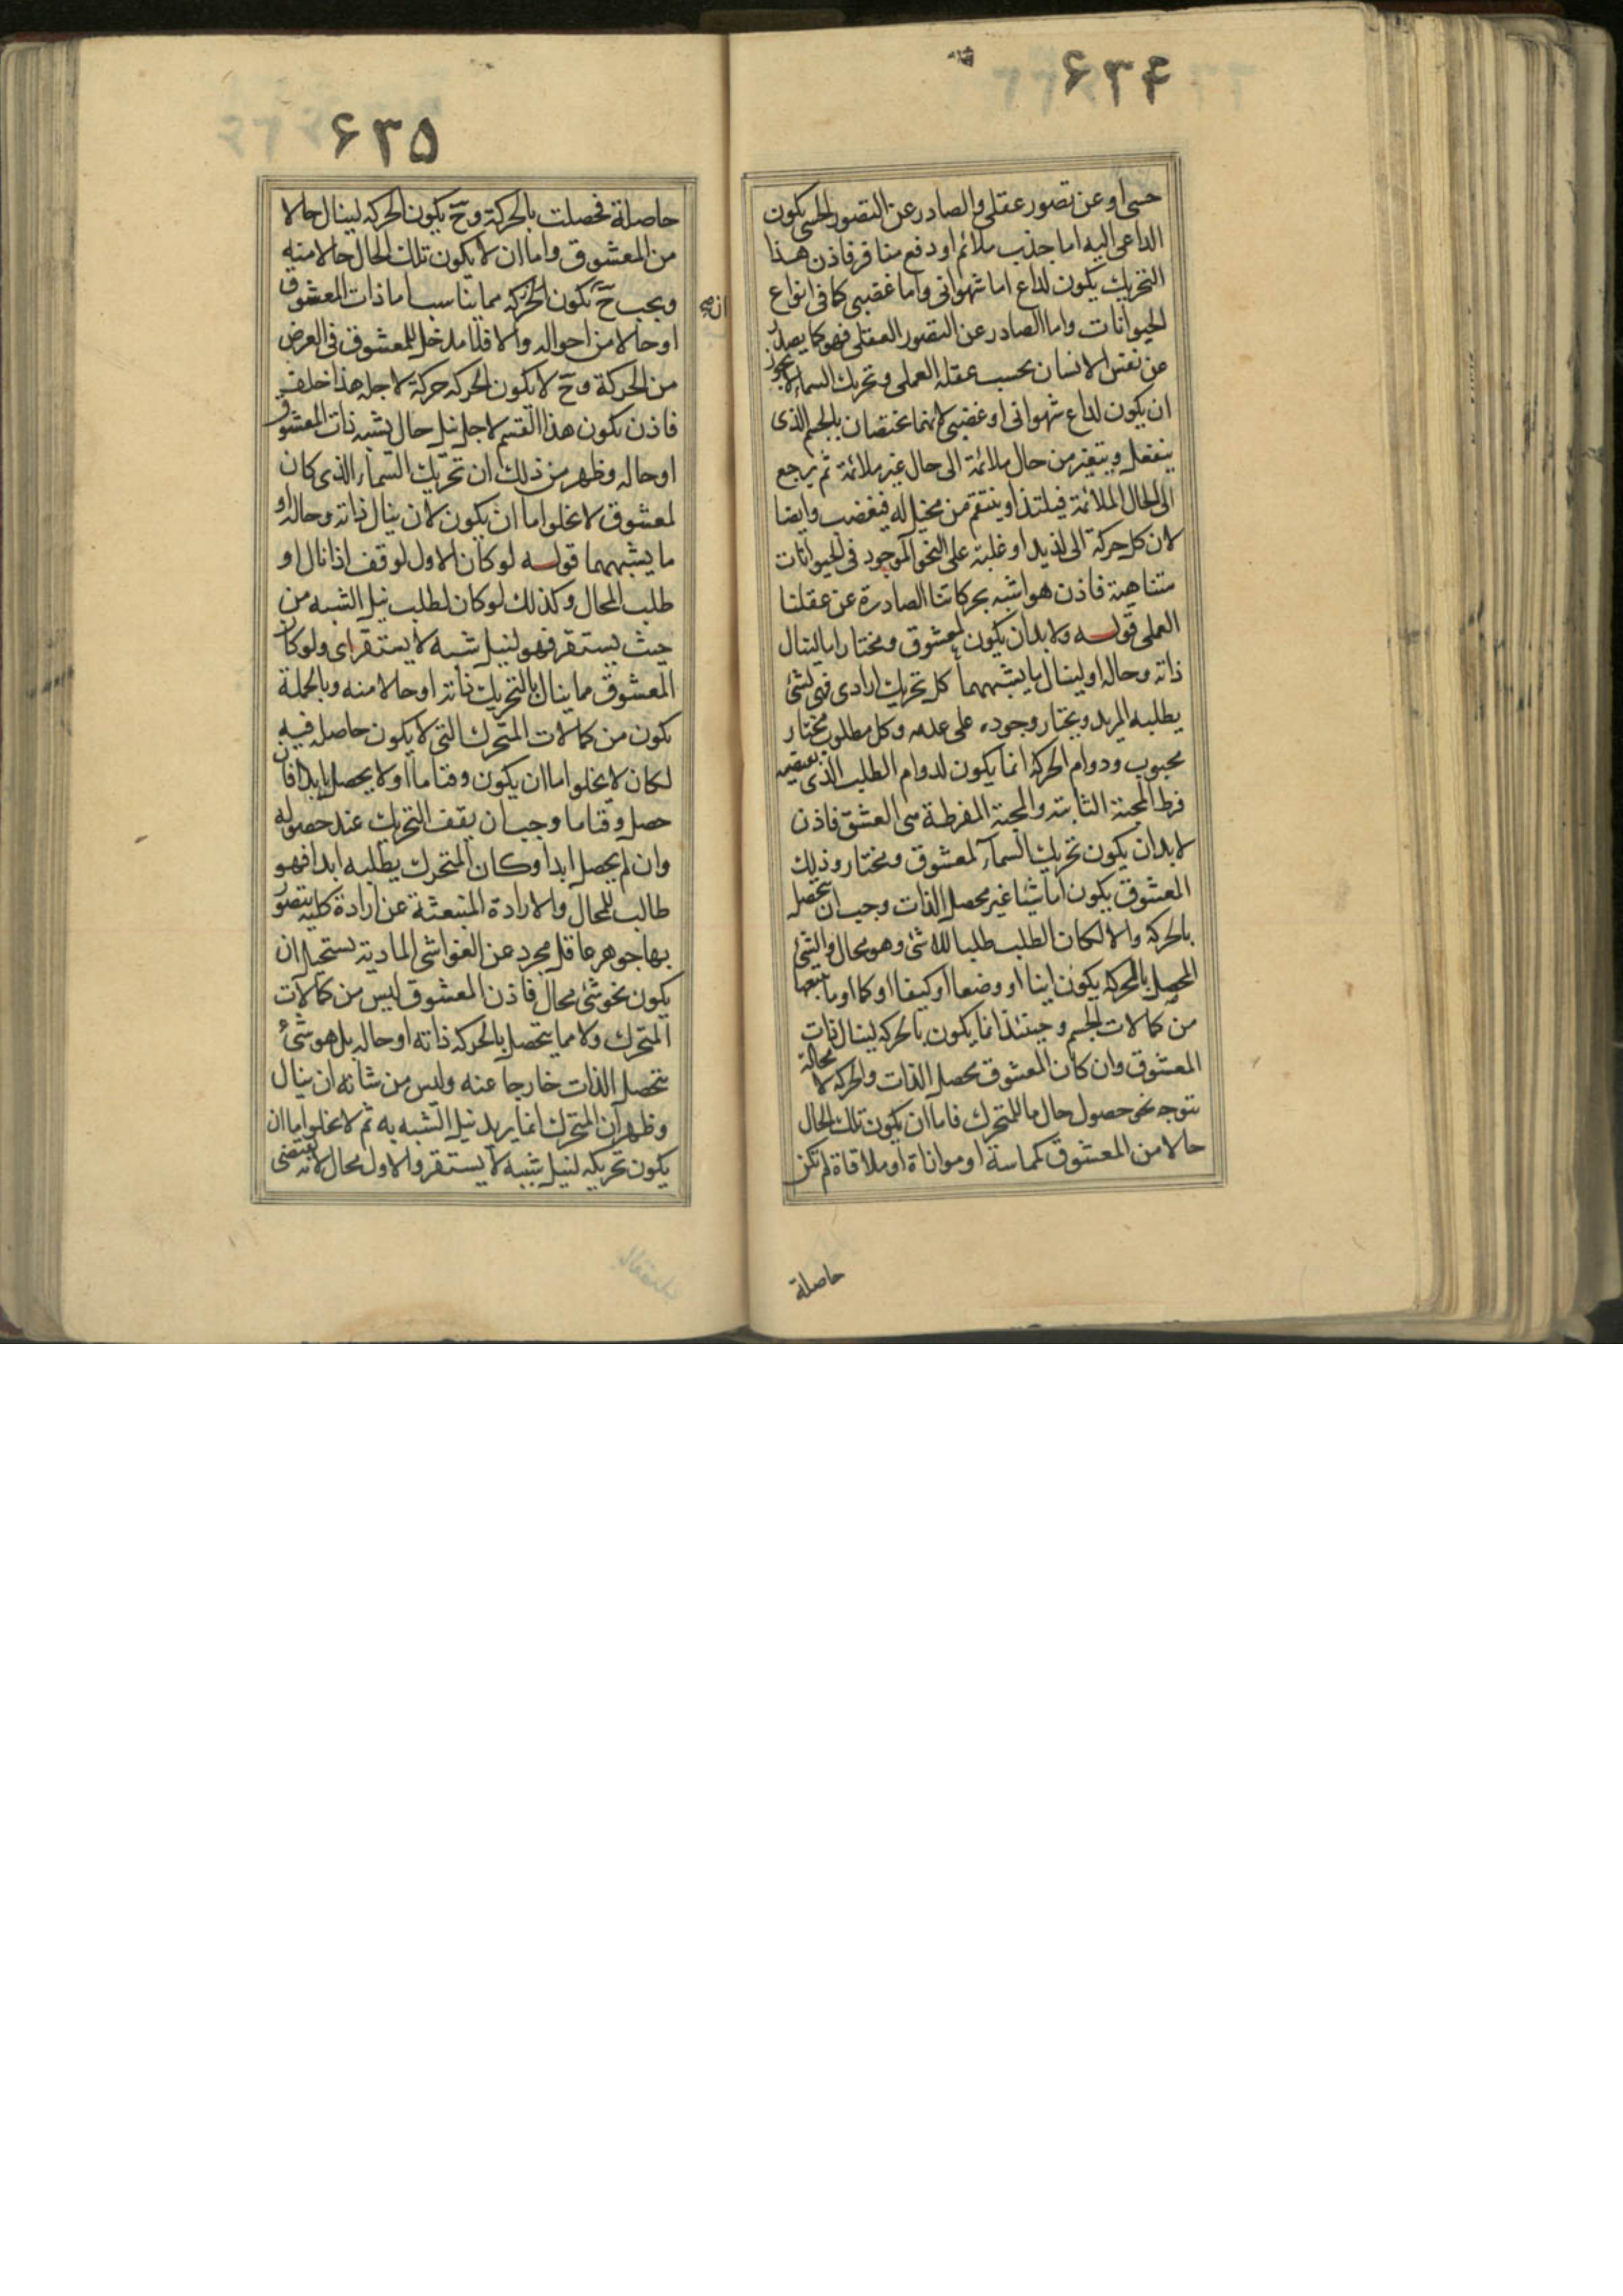 ۶۳۴
حسی او عن تصور عقلی والصادر عن التصور الحسی یکون
الداعی الیه اما جذب ملائم او دفع منافر فاذن هذا
التحریك یکون لداع اما شهوانی واما غضبی کما فی انواع
الحیوانات واما الصادر عن التصور العقلی فهو کما یصدر
عن نفس الانسان بحسب عقله العملی وتحریك السماء لا یجوز
ان یکون لداع شهوانی او غضبی لانهما یختصان بالجسم الذی
ینفعل ویتغیر من حال ملائمة الی حال غیر ملائمة ثم یرجع
الی الحال الملائمة فیلتذ او ینتقم من مخیل له فیغضب وایضا
لان کل حرکة الی لذیذ او غلبة علی النحو الموجود فی الحیوانات
متناهیة فاذن هو اشبه بحرکاتنا الصادرة عن عقلنا
العملی قوله ولا بد ان یکون لمعشوق ومختار اما لینال
ذاته وحاله او لینال ما یشبههما کل تحریك ارادی فهی لشئ
یطلبه المرید ویختار وجوده علی عدمه وکل مطلوب مختار
محبوب ودوام الحرکة انما یکون لدوام الطلب الذی یقتضیه
فرط المحبة الثابتة والمحبة المفرطة هی العشق فاذن
لا بد ان یکون تحریك السمآء لمعشوق ومختار وذلك
المعشوق یکون اما شیئا غیر محصل الذات وجب ان یحصل
بالحرکة والا لکان الطلب طلبا للا شئ وهو محال والشئ
المحصل بالحرکة یکون اینا او وضعا او کیفا او کما او ما یتبعها
من کمالات الجسم وحینئذ انما یکون بالحرکة لینال ذات
المعشوق وان کان المعشوق محصل الذات والحرکة لا محالة
تتوجه نحو حصول حال ما للمتحرك فاما ان یکون تلك الحال
حالا من المعشوق کمماسة او موازاة او ملاقاة لم تکن
حاصلة
۶۳۵
حاصلة فحصلت بالحرکة وح یکون الحرکة لینال حالا
من المعشوق واما ان لا یکون تلك الحال حالا منه
ویجب ح ان یکون الحرکة مما یناسب اما ذات المعشوق
او حالا من احواله والا فلا مدخل للمعشوق فی الغرض
من الحرکة وح لا یکون الحرکة حرکة لاجله هذا خلف
فاذن یکون هذا القسم لاجل نیل حال یشبه ذات المعشوق
او حاله وظهر من ذلك ان تحریك السماء الذی کان
لمعشوق لا یخلو اما ان یکون لان ینال ذاته وحاله او
ما یشبههما قوله لو کان الاول لوقف اذا نال او
طلب المحال وکذلك لو کان لطلب نیل الشبه من
حیث یستقر فهو لنیل شبه لا یستقر ای ولو کان
المعشوق مما ینال بالتحریك ذاته او حالا منه وبالجملة
یکون من کمالات المتحرك التی لا یکون حاصله فیه
لکان لا یخلو اما ان یکون وقتا ما او لا یحصل ابدا فان
حصل وقتا ما وجب ان یقف التحریك عند حصوله
وان لم یحصل ابدا وکان المتحرك یطلبه ابدا فهو
طالب للمحال والارادة المنبعثة عن ارادة کلیه یتصور
بها جوهر عاقل مجرد عن الغواشی المادیة یستحیل ان
یکون نحو شئ محال فاذن المعشوق لیس من کمالات
المتحرك ولا مما یتحصل بالحرکة ذاته او حاله بل هو شئ
یتحصل الذات خارجا عنه ولیس من شانه ان ینال
وظهر ان المتحرك انما یرید نیل الشبه به ثم لا یخلو اما ان
یکون تحریکه لنیل شبه لا یستقر والاول محال لانه یقتضی